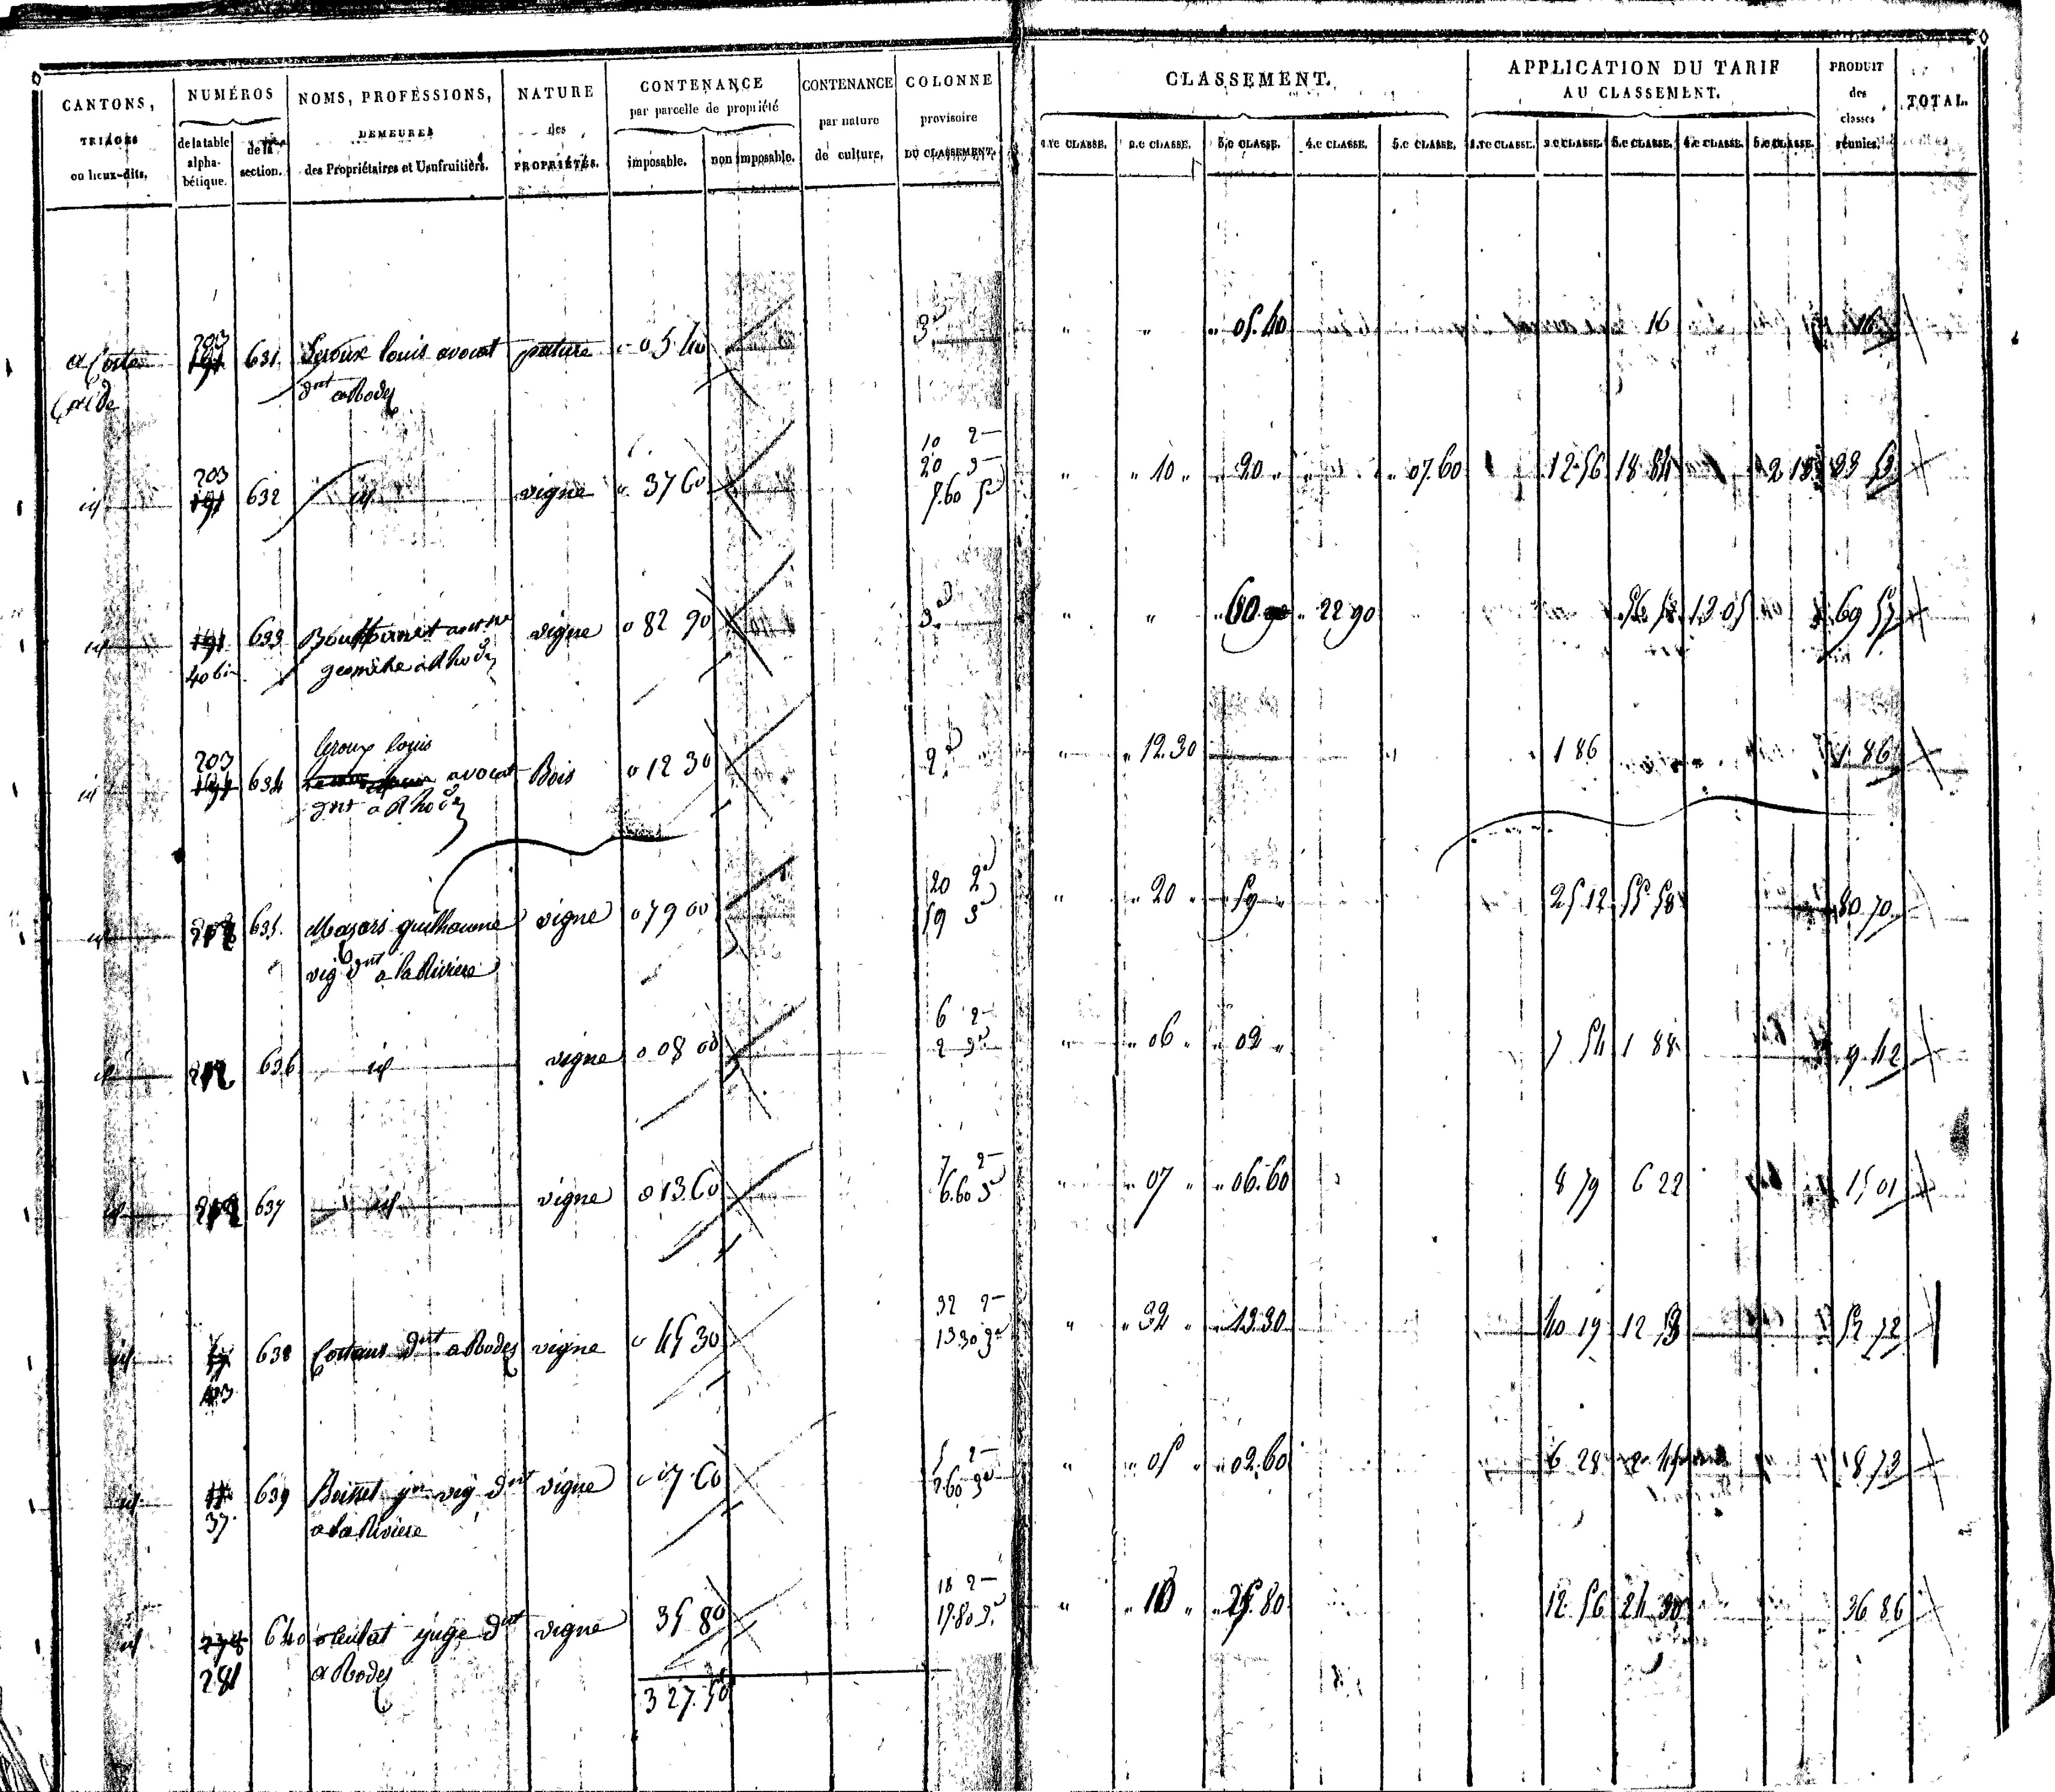 CANTONS, TRIAGES ou lieux-dits.
NUMÉROS de la table alphabétique. de la section.
NOMS, PROFESSIONS, DEMEURES des Propriétaires et Usufruitiers.
NATURE des PROPRIÉTÉS.
CONTENANCE par parcelle de propriété imposable. non imposable.
CONTENANCE par nature de culture.
COLONNE provisoire DU CLASSEMENT.
CLASSEMENT. 1.re CLASSE. 2.e CLASSE. 3.e CLASSE. 4.e CLASSE. 5.e CLASSE.
APPLICATION DU TARIF AU CLASSEMENT. 1.re CLASSE. 2.e CLASSE. 3.e CLASSE. 4.e CLASSE. 5.e CLASSE.
PRODUIT des classes réunies.
TOTAL.
203 191 631 Leroux louis avocat pature 0 5 40 3e " " " 05.40 16 16
dnt a Rodez
id 203 191 632 id vigne " 37 60 10 2 20 3 7.60 5e " " 10 " " 20 " " 07.60 12 56 18 84 2 13 33 53
id 191 633 vigne 0 82 90 3e " " " 60 " 22 90 56 52 13 05 69 57
40 bis géomètre à Rhodez
Leroux louis
id 203 191 634 avocat Bois 0 12 30 2e " 12.30 1 86 1 86
dnt a Rhodez
id 212 635 Mazars guilhaume vigne 0 79 00 20 2e 59 3e " " 20 " 59 " 25 12 55 58 80 70
vig dnt a la Riviere
id 212 636 id vigne 0 08 00 6 2 2 3e " " 06 " " 02 " 7 54 1 88 9 42
id 212 637 id vigne 0 13.60 7 2 6.60 3e " " 07 " " 06.60 8 79 6 22 15 01
id 638 dnt a Rodez vigne 0 45 30 32 2 13 30 3e " " 32 " " 13.30 40 19 12 53 52 72
id 639 Boisset jn vig dnt vigne 0 07 60 5 2 2.60 3e " " 05 " " 02.60 6 28 2 45 8 73
37 a la Riviere
id 278 640 juge dnt vigne 35 80 18 2 17.80 3e " " 10 " " 25.80 12 56 24 30 36 86
281 a Rodez
327.50